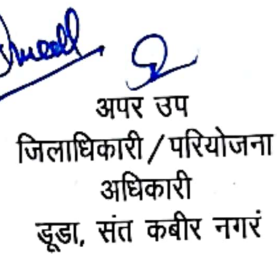 अपर उप
जिलाधिकारी/परियोजना
अधिकारी
डूडा, संत कबीर नगरं